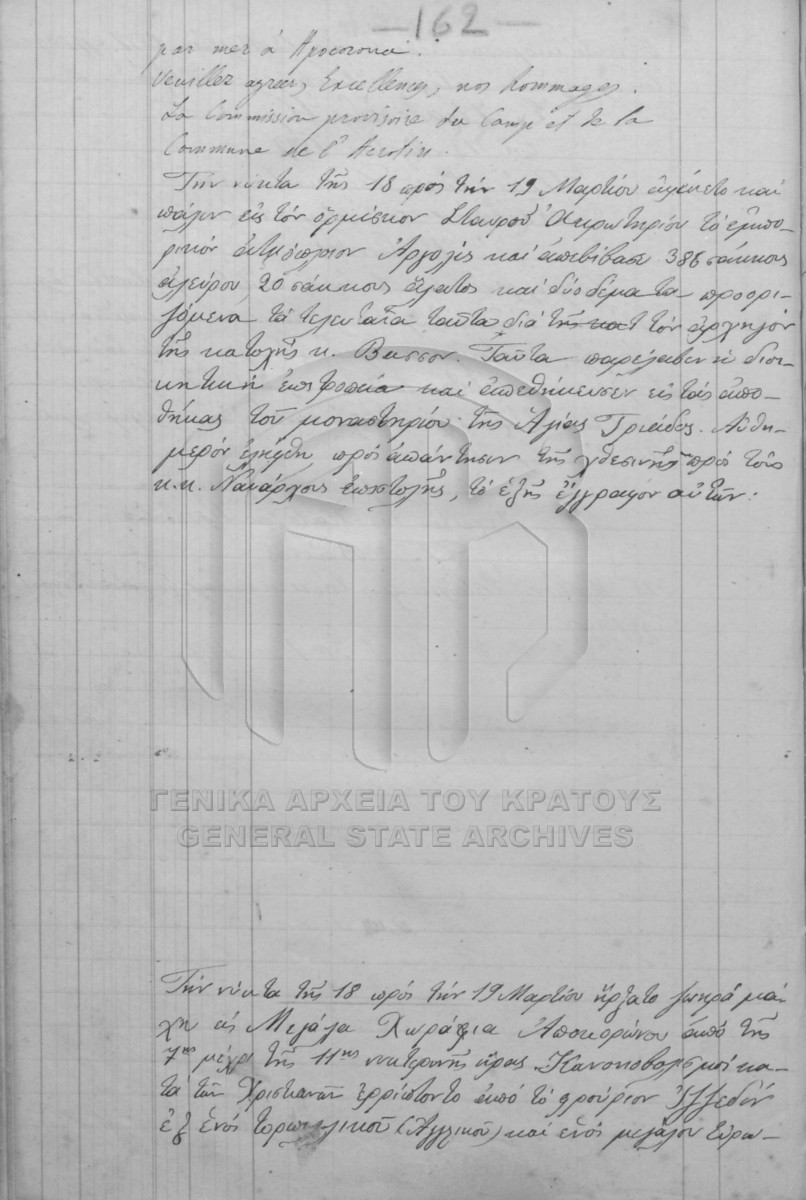 —162—
par mer à Apocorona.
Veuillez agréer, Excellences, nos hommages.
La Commission provisoire du Camp et de la
Commune de l'Acrotiri.
Τὴν νύκτα τῆς 18 πρὸς τὴν 19 Μαρτίου ἀφίκετο καὶ
πάλιν εἰς τὸν ὁρμίσκον Σταυροῦ Ἀκρωτηρίου τὸ ἐμπο-
ρικὸν ἀτμόπλοιον Ἀργολὶς καὶ ἀπεβίβασε 386 σάκκους
ἀλεύρου, 20 σάκκους ἅλατος καὶ δύο δέματα προορι-
ζόμενα τὰ τελευταῖα ταῦτα διὰ τὸν ἀρχηγὸν
τῆς κατοχῆς κ. Βάσσον. Ταῦτα παρέλαβεν ἡ διοι-
κητικὴ ἐπιτροπεία καὶ ἀπεθήκευσεν εἰς τὰς ἀπο-
θήκας τοῦ μοναστηρίου τῆς Ἁγίας Τριάδος. Αὐθη-
μερὸν ἐλήφθη πρὸς ἀπάντησιν τῆς χθεσινῆς πρὸς τοὺς
κ.κ. Ναυάρχους ἐπιστολῆς, τὸ ἑξῆς ἔγγραφον αὐτῶν:
ΓΕΝΙΚΑ ΑΡΧΕΙΑ ΤΟΥ ΚΡΑΤΟΥΣ
GENERAL STATE ARCHIVES
Τὴν νύκτα τῆς 18 πρὸς τὴν 19 Μαρτίου ἤρξατο ζωηρὰ μά-
χη εἰς Μεγάλα Χωράφια Ἀποκορώνου ἀπὸ τῆς
7ης μέχρι τῆς 11ης νυκτερινῆς ὥρας. Κανονοβολισμοὶ κα-
τὰ τῶν Χριστιανῶν ἐρρίπτοντο ἀπὸ τὸ φρούριον Ἰζζεδὶν
ἐξ ἑνὸς (Ἀγγλικοῦ) καὶ ἑνὸς μεγάλου Εὐρω-